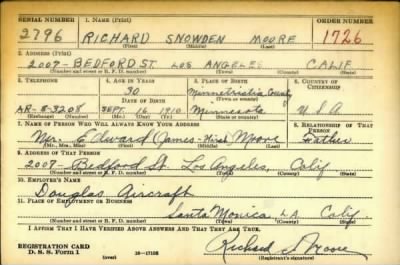 SERIAL NUMBER 1. NAME (Print) ORDER NUMBER
2796 RICHARD SNOWDEN MOORE 1726
(First) (Middle) (Last)
2. ADDRESS (Print)
2007- BEDFORD ST. LOS ANGELES CALIF
(Number and street or R. F. D. number) (Town) (County) (State)
3. TELEPHONE 4. AGE IN YEARS 5. PLACE OF BIRTH 6. COUNTRY OF CITIZENSHIP
30 County
DATE OF BIRTH (Town or county)
AR-8-3208 SEPT. 16 1910 Minnesota U S A
(Exchange) (Number) (Mo.) (Day) (Yr.) (State or country)
7. NAME OF PERSON WHO WILL ALWAYS KNOW YOUR ADDRESS 8. RELATIONSHIP OF THAT PERSON
Edward James Moore Father
(Mr., Mrs., Miss) (First) (Middle) (Last)
9. ADDRESS OF THAT PERSON
2007- Bedford St. Los Angeles, Calif
(Number and street or R. F. D. number) (Town) (County) (State)
10. EMPLOYER'S NAME
Douglas Aircraft
11. PLACE OF EMPLOYMENT OR BUSINESS
Santa Monica, LA Calif.
(Number and street or R. F. D. number) (Town) (County) (State)
I AFFIRM THAT I HAVE VERIFIED ABOVE ANSWERS AND THAT THEY ARE TRUE.
REGISTRATION CARD
D. S. S. Form 1 16-17105 Richard S Moore
(Registrant's signature)